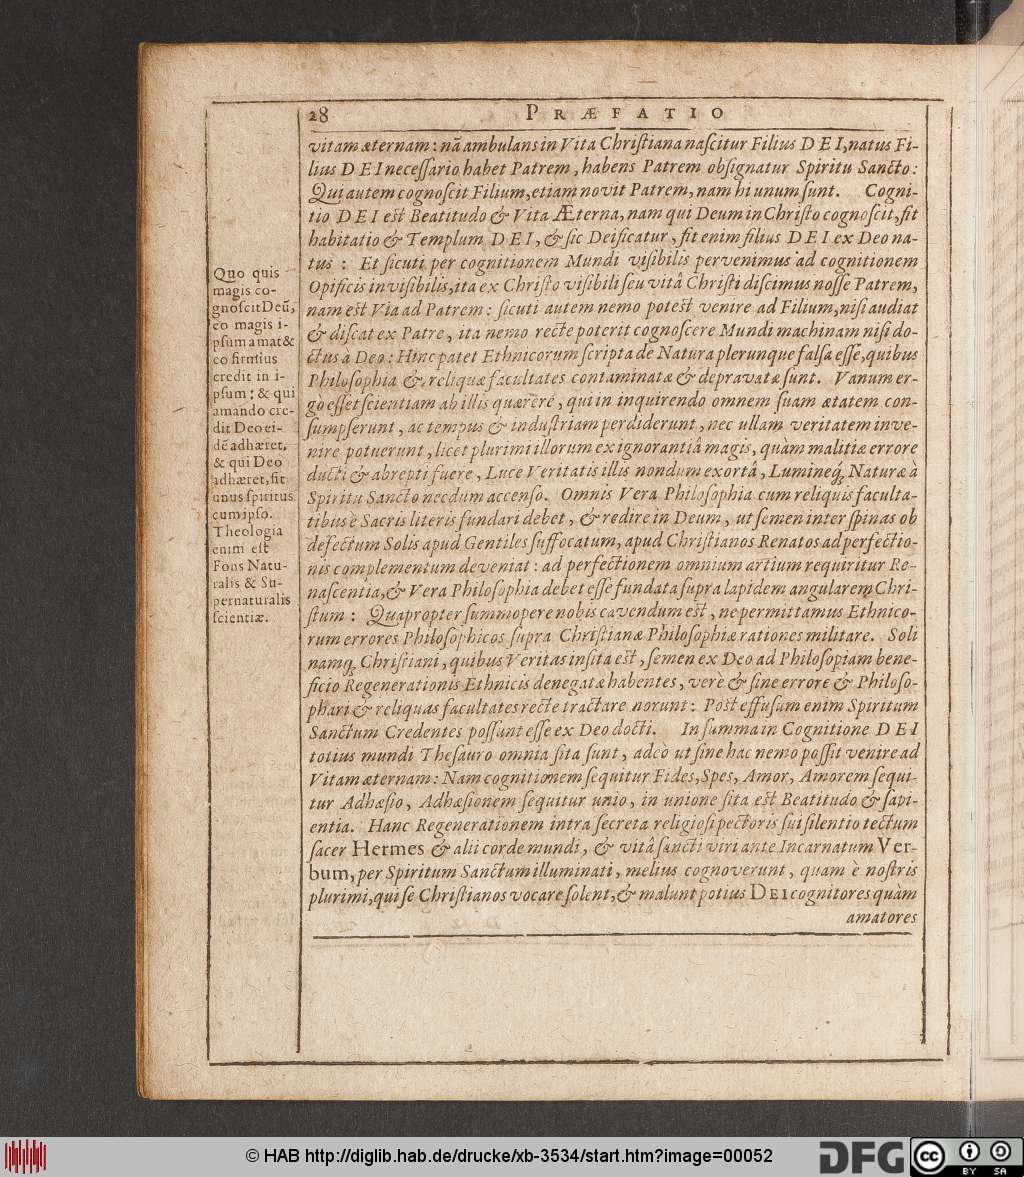 28 PRÆFATIO
vitam æternam: nã ambulans in Vita Christiana nascitur Filius DEI, natus Fi-
lius DEI necessario habet Patrem, habens Patrem obsignatur Spiritu Sancto:
Qui autem cognoscit Filium, etiam novit Patrem, nam hi unum sunt. Cogni-
tio DEI est Beatitudo & Vita Æterna, nam qui Deum in Christo cognoscit, fit
habitatio & Templum DEI, & sic Deificatur, fit enim filius DEI ex Deo na-
tus: Et sicuti per cognitionem Mundi visibilis pervenimus ad cognitionem
Opificis invisibilis, ita ex Christo visibili seu vitâ Christi discimus nosse Patrem,
nam est Via ad Patrem: sicuti autem nemo potest venire ad Filium, nisi audiat
& discat ex Patre, ita nemo recte poterit cognoscere Mundi machinam nisi do-
ctus à Deo: Hinc patet Ethnicorum scripta de Natura plerunque falsa esse, quibus
Philosophia & reliquæ facultates contaminatæ & depravatæ sunt. Vanum er-
gò esset scientiam ab illis quærere, qui in inquirendo omnem suam ætatem con-
sumpserunt, ac tempus & industriam perdiderunt, nec ullam veritatem inve-
nire potuerunt, licet plurimi illorum ex ignorantiâ magis, quàm malitiæ errore
ducti & abrepti fuere, Luce Veritatis illis nondum exortâ, Lumineq; Naturæ à
Spiritu Sancto necdum accenso. Omnis Vera Philosophia cum reliquis faculta-
tibus è Sacris literis fundari debet, & redire in Deum, ut semen inter spinas ob
defectum Solis apud Gentiles suffocatum, apud Christianos Renatos ad perfectio-
nis complementum deveniat: ad perfectionem omnium artium requiritur Re-
nascentia, & Vera Philosophia debet esse fundata supra lapidem angularem Chri-
stum: Quapropter summopere nobis cavendum est, ne permittamus Ethnico-
rum errores Philosophicos supra Christianæ Philosophiæ rationes militare. Soli
namq; Christiani, quibus Veritas insita est, semen ex Deo ad Philosopiam bene-
ficio Regenerationis Ethnicis denegatæ habentes, verè & sine errore & Philoso-
phari & reliquas facultates recte tractare norunt: Post effusum enim Spiritum
Sanctum Credentes possunt esse ex Deo docti. In summa in Cognitione DEI
totius mundi Thesauro omnia sita sunt, adeò ut sine hac nemo possit venire ad
Vitam æternam: Nam cognitionem sequitur Fides, Spes, Amor, Amorem sequi-
tur Adhæsio, Adhæsionem sequitur unio, in unione sita est Beatitudo & sapi-
entia. Hanc Regenerationem intra secreta religiosi pectoris sui silentio tectum
sacer Hermes & alii corde mundi, & vitâ sancti viri ante Incarnatum Ver-
bum, per Spiritum Sanctum illuminati, melius cognoverunt, quam è nostris
plurimi, qui se Christianos vocare solent, & malunt potius DEI cognitores quàm
amatores
Quo quis
magis co-
gnoscit Deũ,
eo magis i-
psum amat &
eo firmius
credit in i-
psum: & qui
amando cre-
dit Deo ei-
dẽ adhæret,
& qui Deo
adhæret, fit
unus spiritus
cum ipso.
Theologia
enim est
Fons Natu-
ralis & Su-
pernaturalis
scientiæ.
© HAB http://diglib.hab.de/drucke/xb-3534/start.htm?image=00052
DFG
cc BY SA